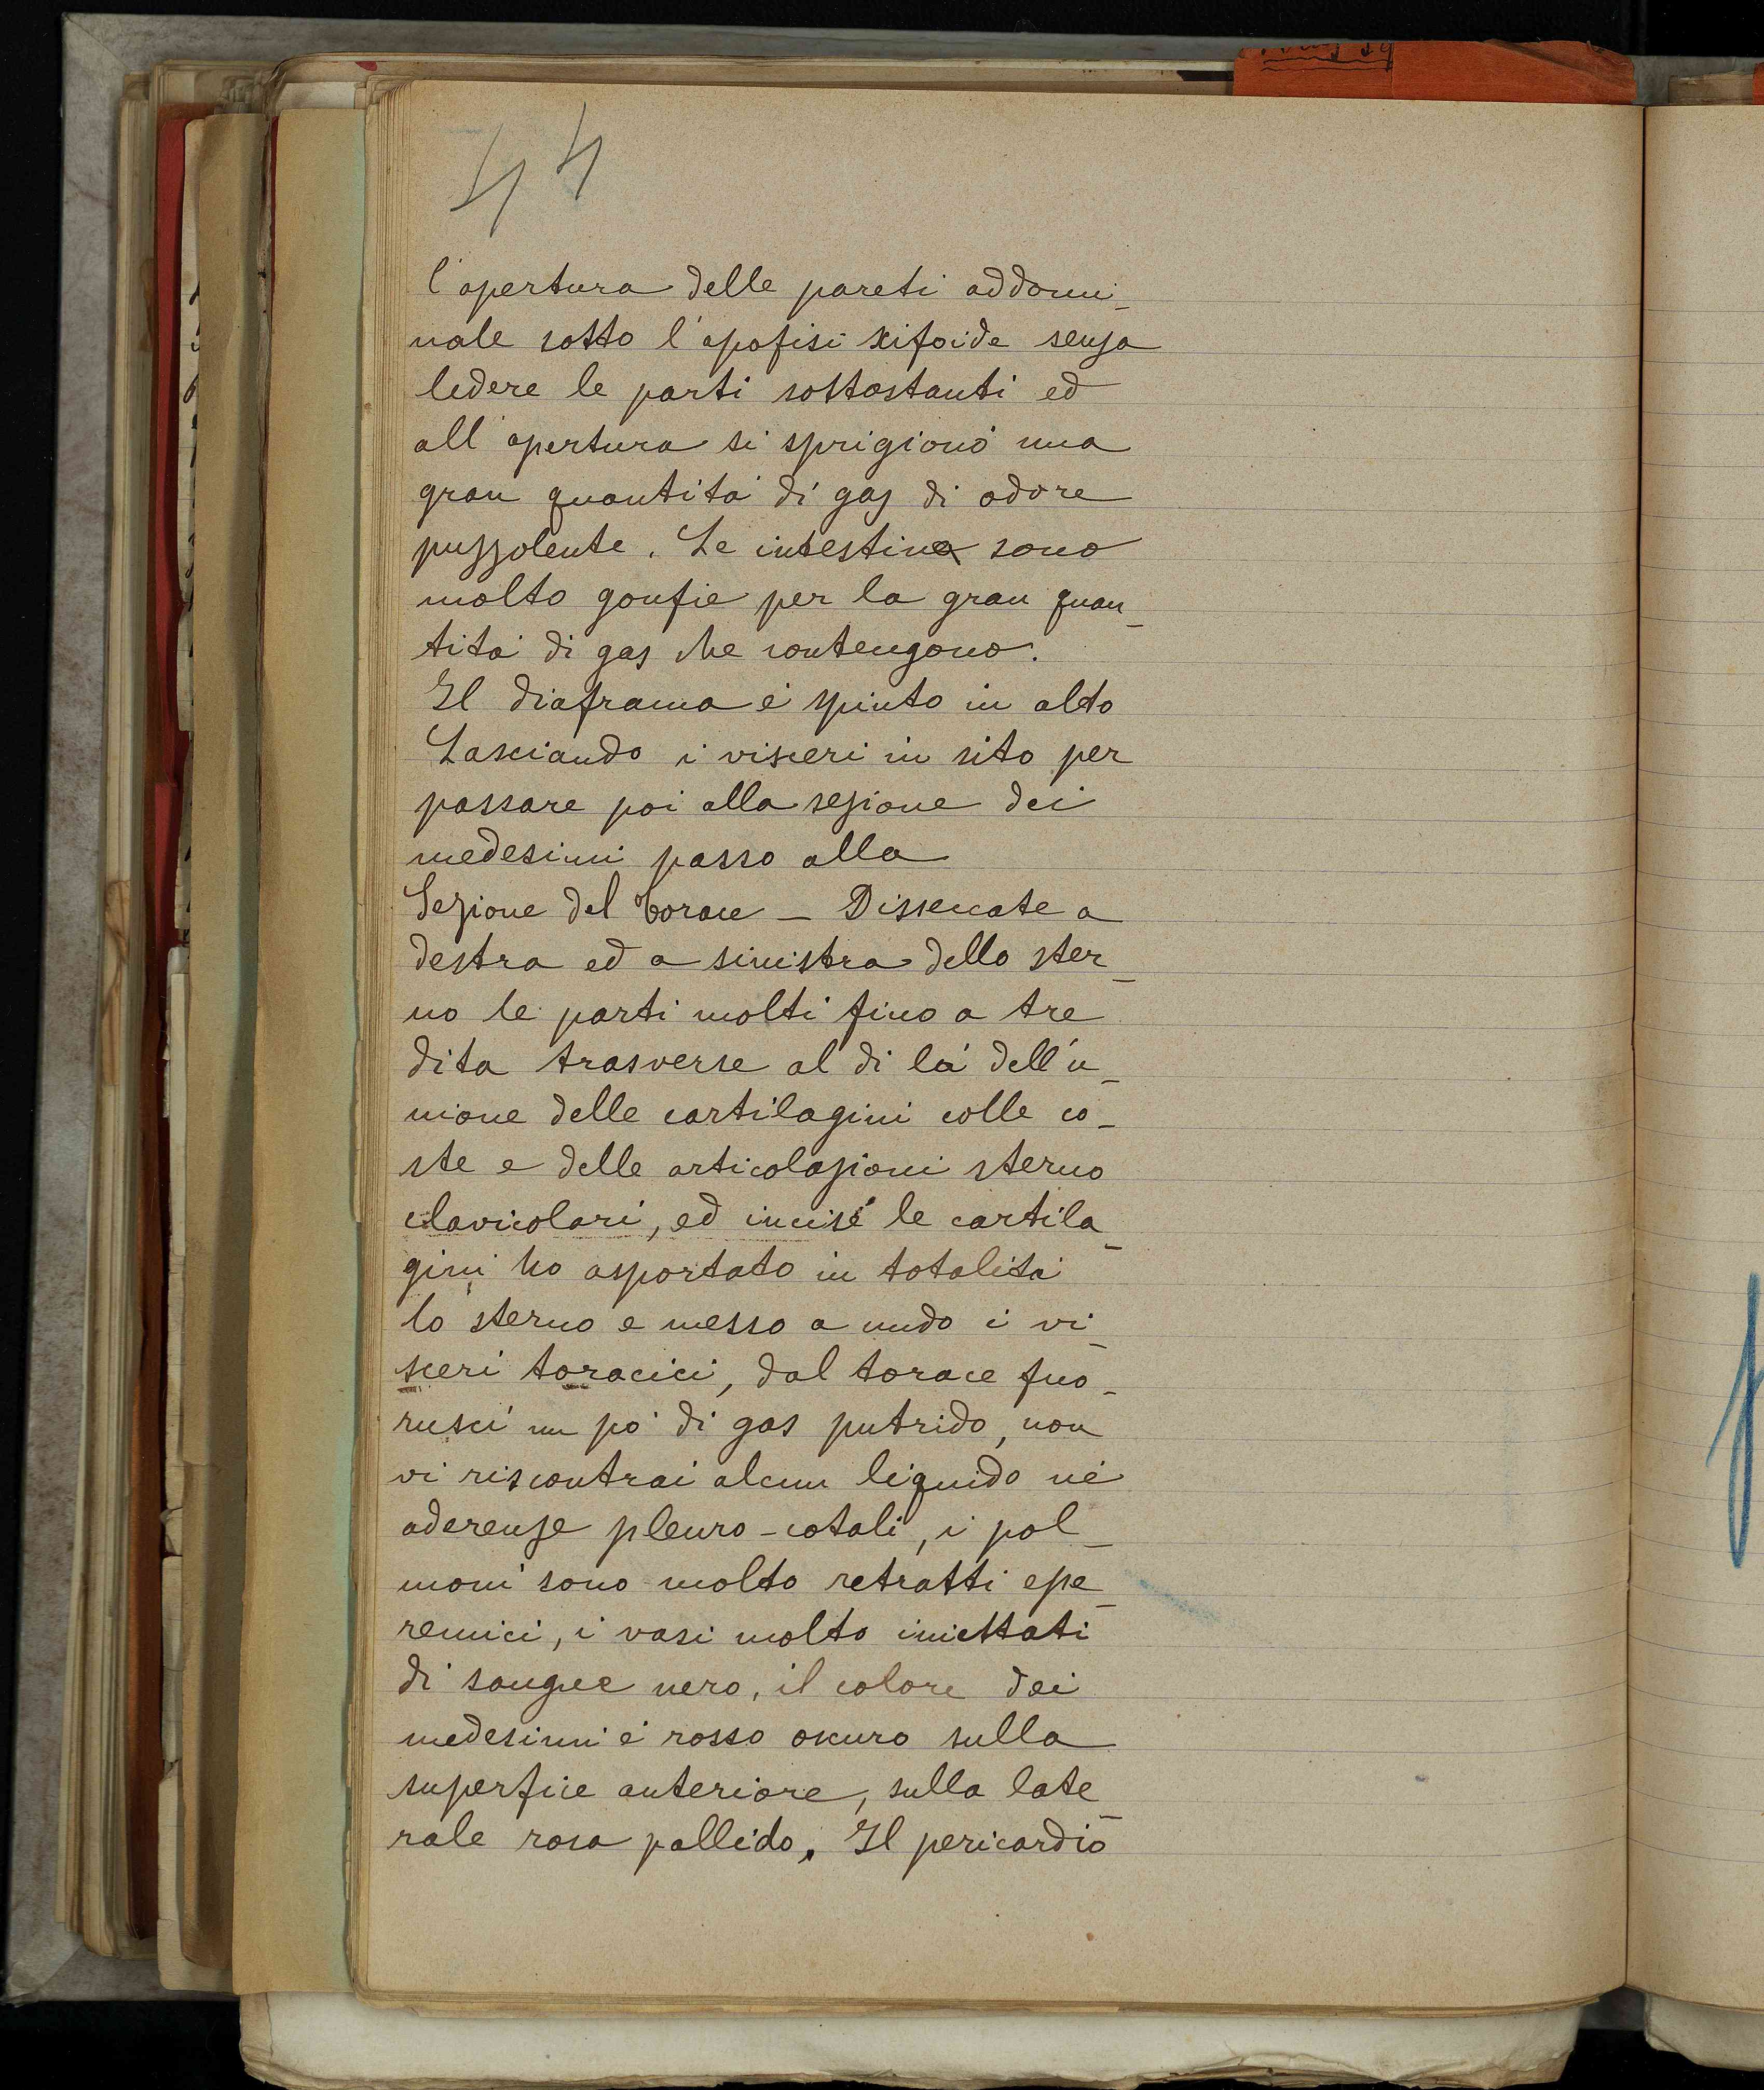 44
l'apertura delle pareti addomi_
nale sotto l'apofisi xifoide senza
ledere le parti sottostanti ed
all'apertura si sprigionò una
gran quantità di gaz di odore
puzzolente. Le intestina sono
molto gonfie per la gran quan_
tità di gas che contengono.
Il diaframa è spinto in alto
Lasciando i visceri in sito per
passare poi alla sezione dei
medesimi passo alla
Sezione del torace _ Dissecate a
destra ed a sinistra dello ster_
no le parti molti fino a tre
dita trasverse al di là dell'u_
nione delle cartilagini colle co_
ste e delle articolazioni sterno
clavicolari, ed incise le cartila_
gini ho asportato in totalità
lo sterno e messo a nudo i vi_
sceri toracici, dal torace fuo_
rusci un pò di gas putrido, non
vi riscontrai alcun liquido nè
aderenze pleuro-cotali, i pol_
moni sono molto retratti epe_
remici, i vasi molto iniettati
di sangue nero, il colore dei
medesimi è rosso oscuro sulla
superficie anteriore, sulla late_
rale rosa pallido. Il pericardio